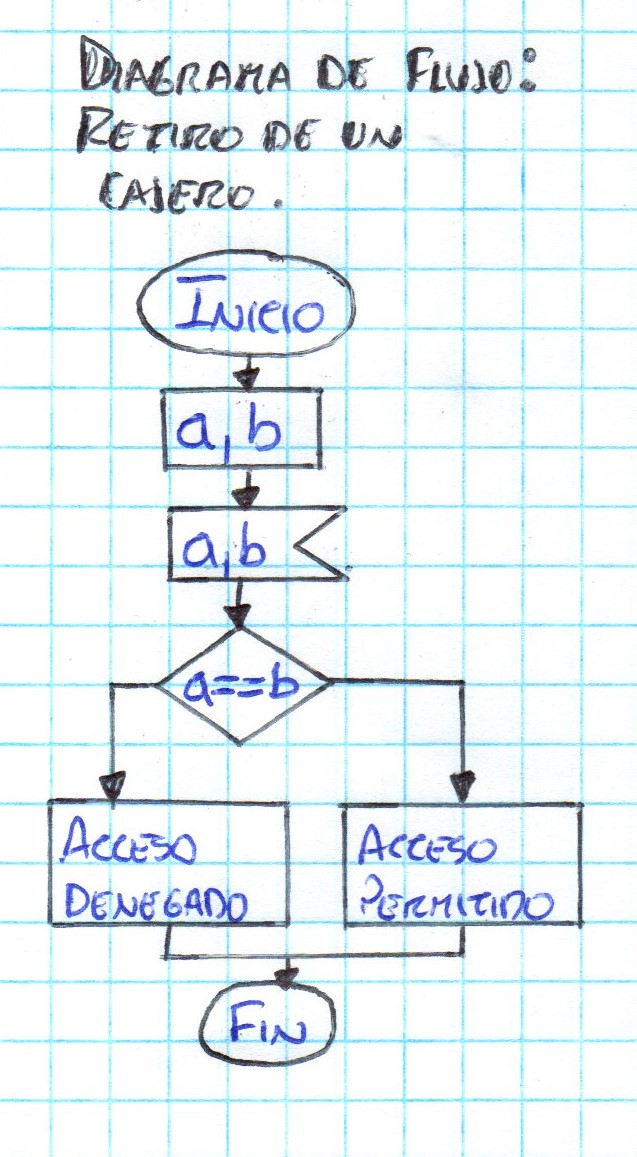 DIAGRAMA DE FLUJO:
RETIRO DE UN
CAJERO.
INICIO
a, b
a, b
a==b
ACCESO
DENEGADO
ACCESO
PERMITIDO
FIN